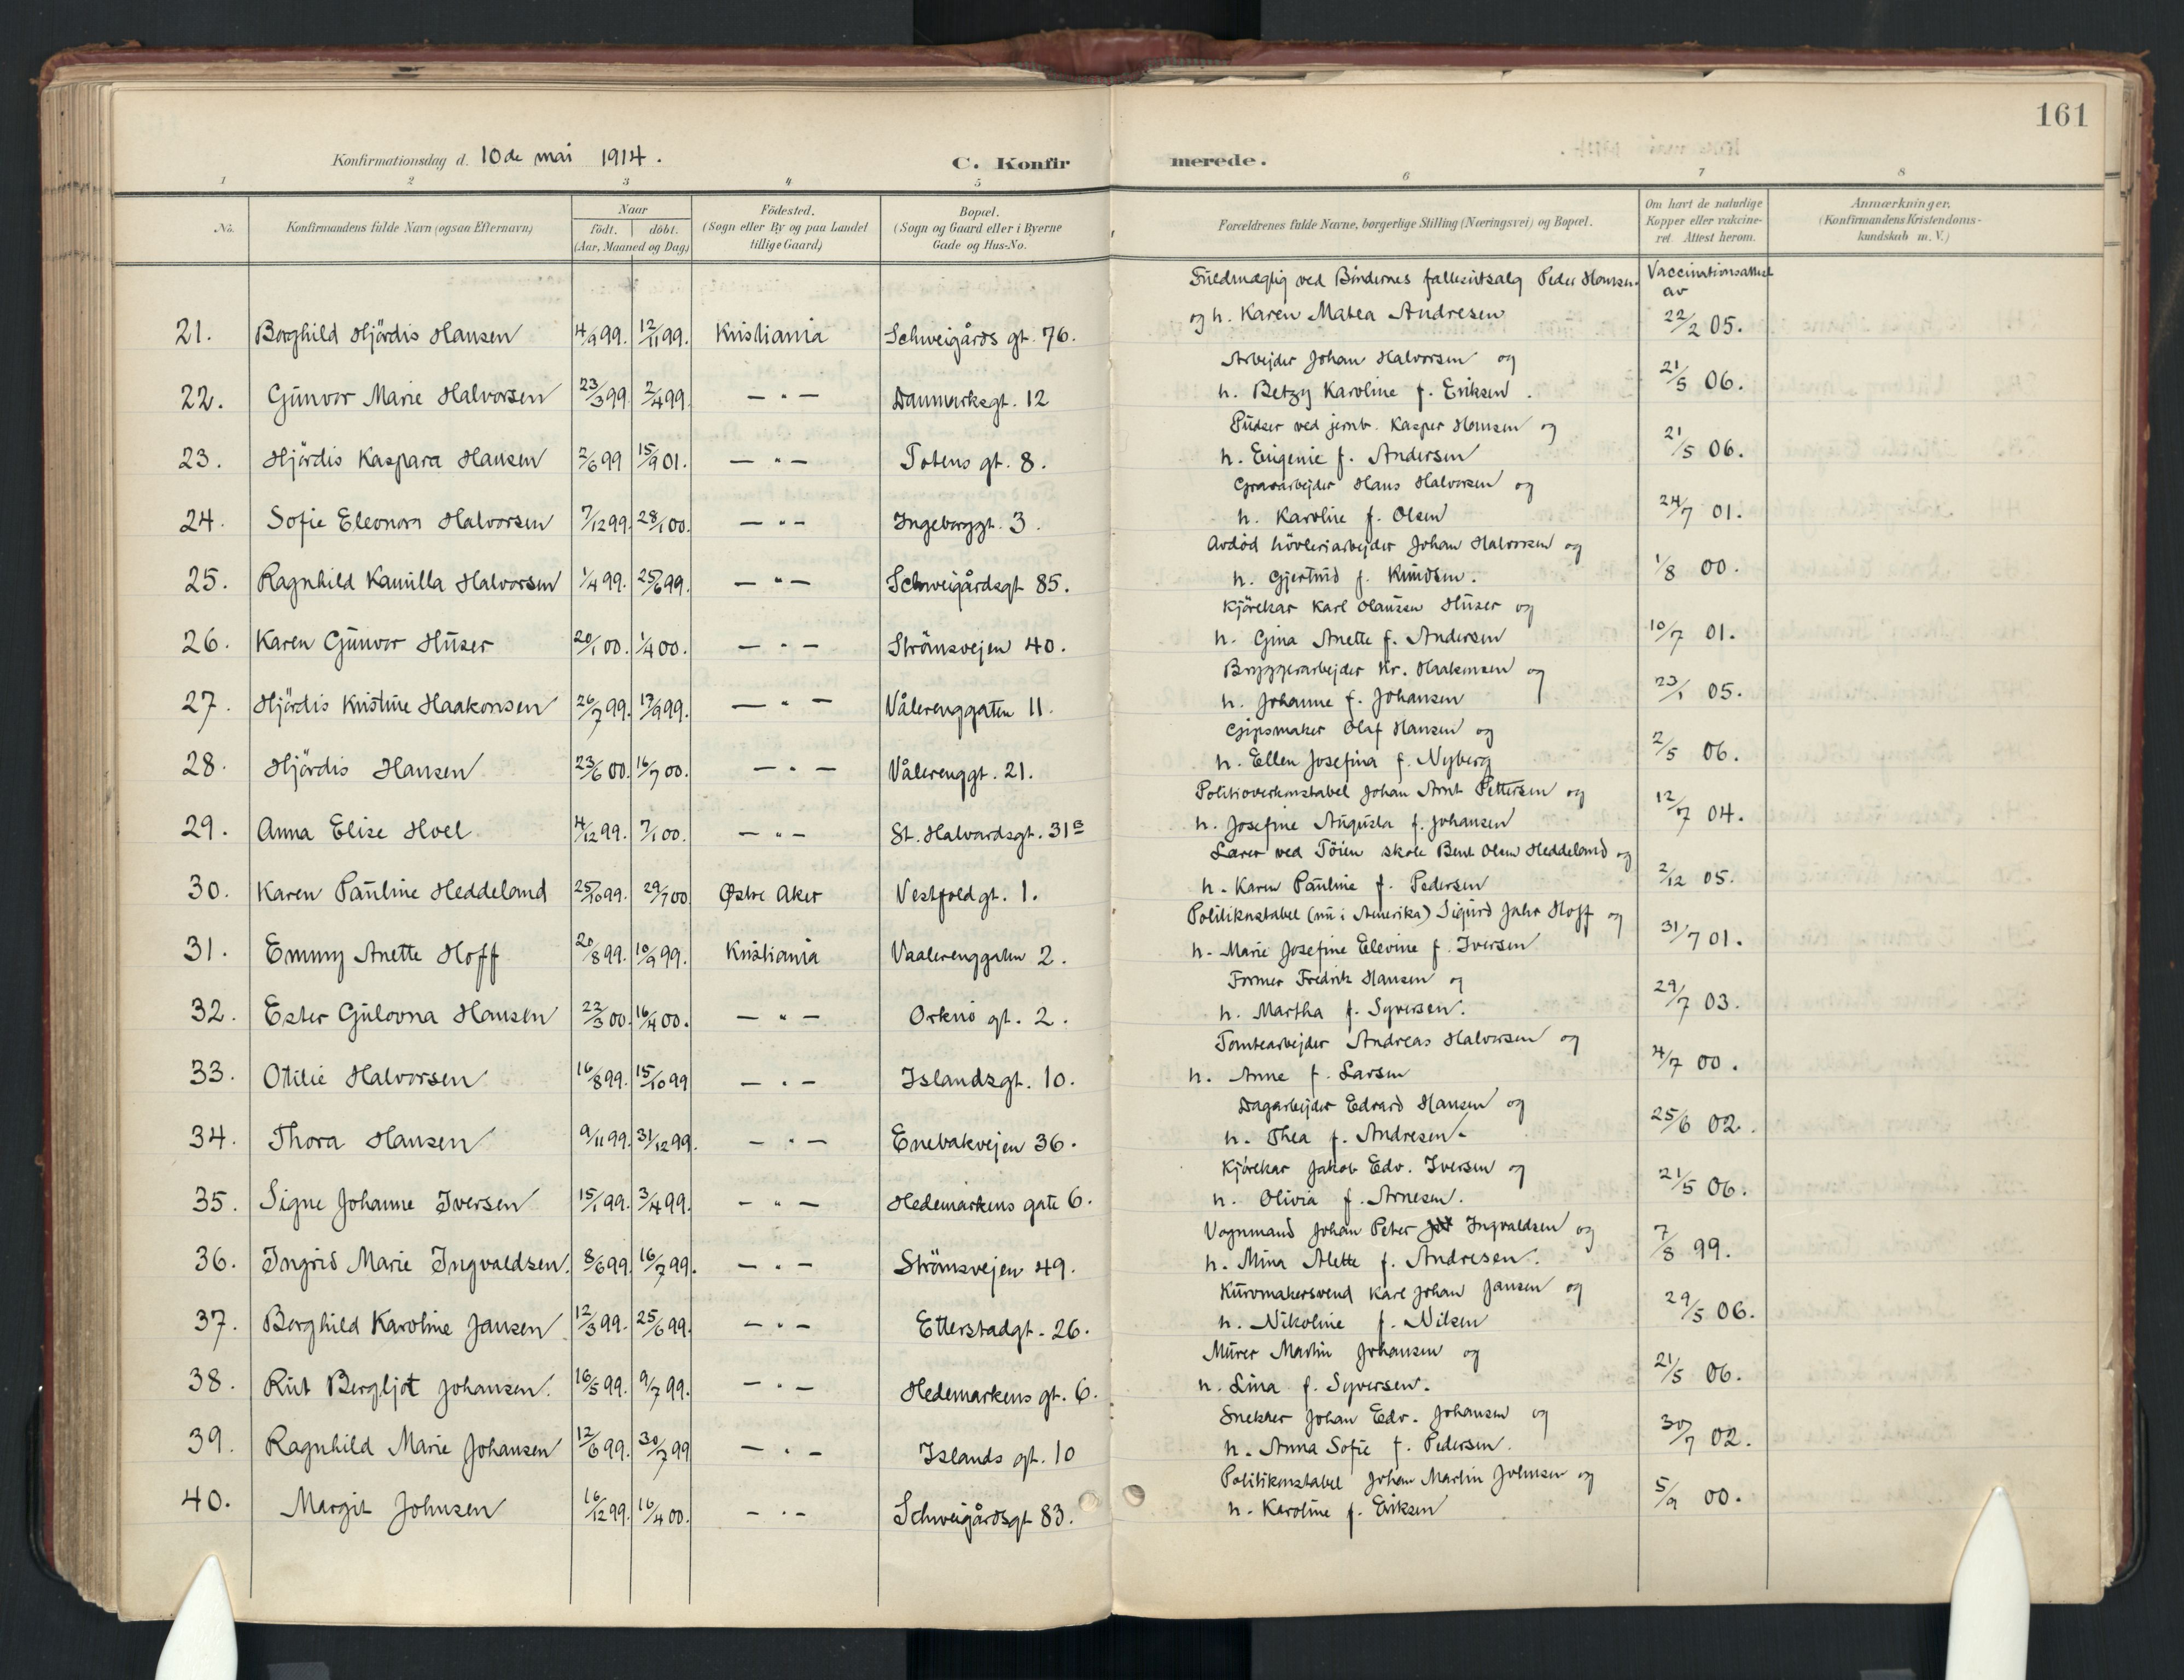 161
Konfirmationsdag d. 10de mai 1914.
C. Konfirmerede.
1 2 3 4 5 6 7 8
No. Konfirmandens fulde Navn (ogsaa Efternavn) Naar født. døbt. (Aar, Maaned og Dag) Födested. (Sogn eller By og paa Landet tillige Gaard) Bopæl. (Sogn og Gaard eller i Byerne Gade og Hus-No. Forældrenes fulde Navne, borgerlige Stilling (Næringsvei) og Bopæl. Om havt de naturlige Kopper eller vakcineret. Attest herom. Anmærkninger. (Konfirmandens Kristendomskundskab m. V.)
Fuldmægtig ved Bøndernes fællesutsalg Peder Hansen Vaccinationsattest av
21. Borghild Hjördis Hansen 4/9 99. 12/11 99. Kristiania Schweigårds gt. 76. og h. Karen Matea Andresen 22/2 05.
Arbejder Johan Halvorsen og
22. Gunvor Marie Halvorsen 23/3 99 2/4 99. — " — Danmarksgt. 12 h. Betzy Karoline f. Eriksen. 21/5 06.
Pudser ved jernb. Kasper Hansen og
23. Hjördis Kaspara Hansen 2/6 99 15/9 01. — " — Totens gt. 8. h. Eugenie f. Andersen 21/5 06.
Gravarbejder Hans Halvorsen og
24. Sofie Eleonora Halvorsen 7/12 99. 28/1 00. — " — Ingeborggt. 3. h. Karoline f. Olsen 24/7 01.
Avdöd hövleriarbejder Johan Halvorsen og
25. Ragnhild Kamilla Halvorsen 1/4 99. 25/6 99. — " — Schweigårdsgt 85. h. Gjertrud f. Knudsen. 1/8 00.
Kjörekar Karl Olaussen Huser og
26. Karen Gunvor Huser 20/1 00. 1/4 00. — " — Strömsvejen 40. h. Gina Anette f. Andersen 10/7 01.
Bryggerarbejder Kr. Haakonsen og
27. Hjördis Kristine Haakonsen 26/7 99. 17/9 99. — " — Vålerenggaten 11. h. Johanne f. Johansen 23/1 05.
Gipsmaker Olaf Hansen og
28. Hjördis Hansen 23/6 00. 16/7 00. — " — Vålerenggt. 21. h. Ellen Josefina f. Nyberg 2/5 06.
Politioverkonstabel Johan Arnt Pettersen og
29. Anna Elise Hoel 4/12 99. 7/1 00. — " — St. Halvardsgt. 31B h. Josefine Augusta f. Johansen 12/7 04.
Lærer ved Töien skole Bent Olsen Heddeland og
30. Karen Pauline Heddeland 25/10 99. 29/7 00 Østre Aker Vestfoldgt. 1. h. Karen Pauline f. Pedersen 2/12 05.
Politikonstabel (nu i Amerika) Sigurd Jahr Hoff og
31. Emmy Anette Hoff 20/8 99. 10/9 99. Kristiania Vaalerenggaten 2. h. Marie Josefine Elevine f. Iversen 31/7 01.
Former Fredrik Hansen og
32. Ester Gulovna Hansen 22/3 00. 16/4 00. — " — Orknö gt. 2. h. Martha f. Syversen. 29/7 03.
Tomtearbejder Andreas Halvorsen og
33. Otilie Halvorsen 16/8 99. 15/10 99 — " — Islandsgt. 10. h. Anne f. Larsen 4/7 00.
Dagarbejder Edvard Hansen og
34. Thora Hansen 9/11 99. 31/12 99. — " — Enebakvejen 36. h. Thea f. Andresen. 25/6 02.
Kjörekar Jakob Edv. Iversen og
35. Signe Johanne Iversen 15/1 99. 3/4 99. — " — Hedemarkens gate 6. h. Olivia f. Arnesen. 21/5 06.
Vognmand Johan Peter Ingvaldsen og
36. Ingrid Marie Ingvaldsen. 8/6 99. 16/7 99. — " — Strömsvejen 49. h. Mina Alette f. Andresen. 7/8 99.
Kurvmakersvend Karl Johan Jansen og
37. Borghild Karoline Jansen 12/3 99. 25/6 99. — " — Etterstadgt. 26. h. Nikoline f. Nilsen 29/5 06.
Murer Martin Johansen og
38. Rut Bergljot Johansen. 16/5 99. 9/7 99. — " — Hedemarkens gt. 6. h. Lina f. Syversen. 21/5 06.
Snekker Johan Edv. Johansen og
39. Ragnhild Marie Johansen 12/6 99. 30/7 99 — " — Islands gt. 10 h. Anna Sofie f. Pedersen. 30/7 02.
Politikonstabel Johan Martin Johnsen og
40. Margit Johnsen 16/12 99. 16/4 00. — " — Schweigårdsgt 83. h. Karoline f. Eriksen 5/9 00.